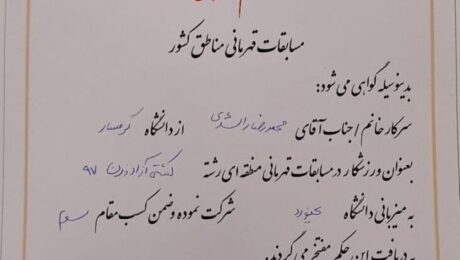 مسابقات قهرمانی مناطق کشور
بدینوسیله گواهی می شود:
سرکار خانم / جناب آقای محمدرضا راشدی از دانشگاه گرمسار
بعنوان ورزشکار در مسابقات قهرمانی منطقه ای رشته کشتی آزاد وزن ۹۷
به میزبانی دانشگاه شرکت نموده و ضمن کسب مقام سوم
به دریافت این حکم مفتخر می گردند.